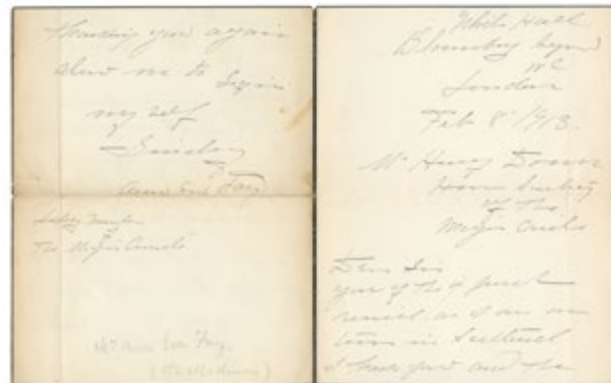 thanking you again
allow me to sign
my self
Sincerely
Anna Eva Fay
Lady Member
of
The Magic Circle
Mrs Anna Eva Fay
White Hall
Bloomsbury Square
WC
London
Feb 8 1913.
Mr Henry Donn
Hon
of The
Magic Circle
Dear Sir
your of the 4 just
as I am on
tour in Scotland
I thank you and the